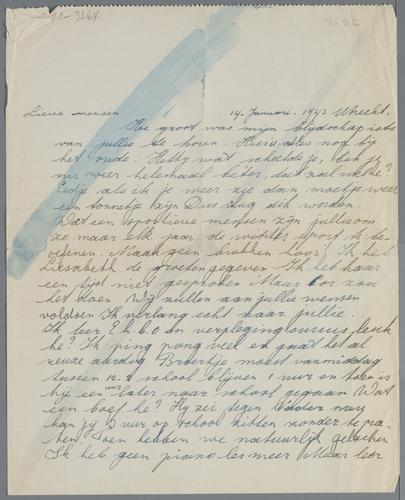 3264
7082
Lieve mensen 14 Januari. 1943 Utrecht.
Hoe groot was mijn blijdschap iets
van jullie te horen. Hier is alles nog bij
het oude. Hetty wat scheelde je, ben je
nu weer helemaal beter, dat zal wel hè?
Eedje als ik je weer zie dan moet je weer
een tonnetje zijn Dus vlug dik worden.
Wat een sportieve mensen zijn jullie om
zo maar elk jaar de winter sport te be-
oefenen. Maak geen brokken hoor! Ik heb
Liesabeth de groeten gegeven Ik heb haar
een tijd niet gesproken Maar Cor zou
het doen Wij zullen aan jullie wensen
voldoen Ik verlang echt naar jullie.
Ik leer E.h.b.o en verpleging cursus, leuk
he? Ik ping pong veel en gaat het al
reuze aardig Broertje moest vanmiddag
tussen 12-2 school blijven 1 uur en toen is
hij een uur later naar school gegaan Wat
een boef he? Hij zei tegen nou
kan jij 3 uur op school zitten zonder te pra-
ten. Toen hebben we natuurlijk gelachen
Ik heb geen piano les meer Maar leer